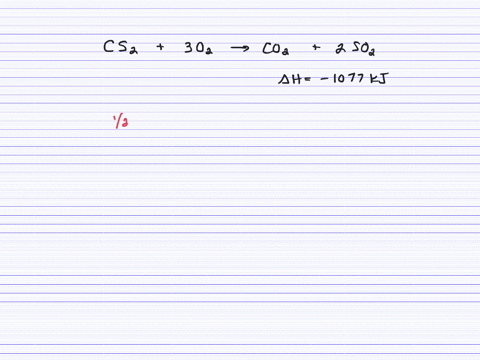 CS₂ + 3O₂ → CO₂ + 2SO₂
ΔH = -1077 KJ
1/2